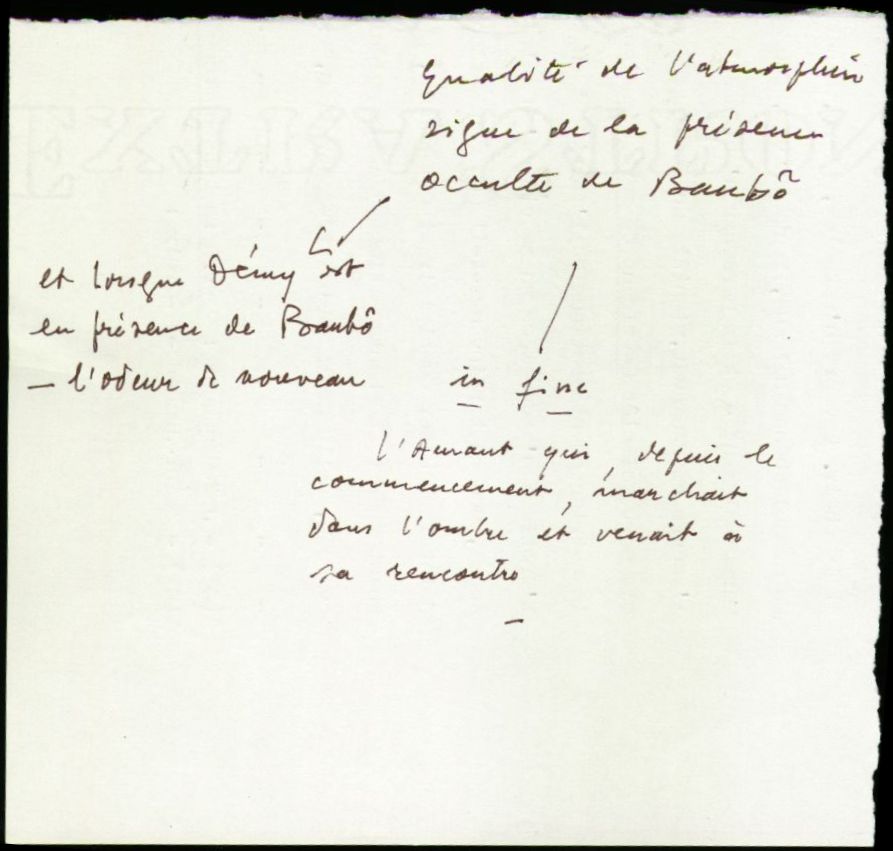 Qualité de l'atmosphère
signe de la présence
occulte de Baubô
et lorsque Démy est
en présence de Baubô
— l'odeur de nouveau
in fine
l'Amant qui, depuis le
commencement, marchait
dans l'ombre et venait à
sa rencontre